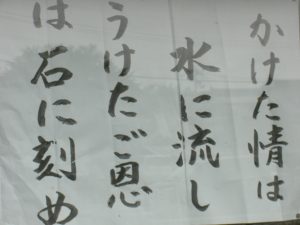 かけた情は
水に流し
うけたご恩
は石に刻め